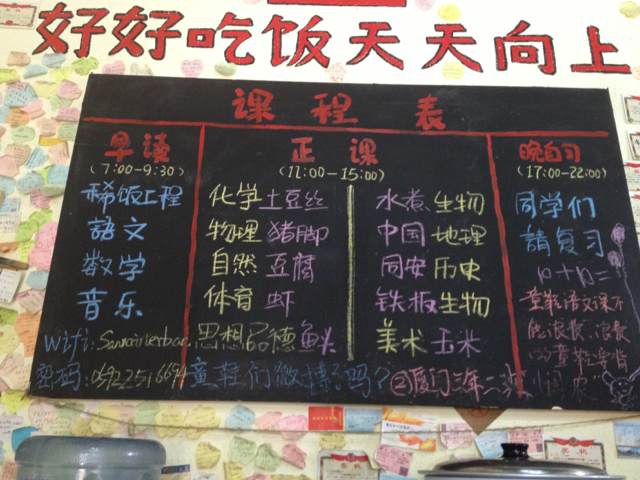 好好吃饭天天向上
课程表
早读
(7:00-9:30)
稀饭工程
語文
数学
音乐
正课
(11:00-15:00)
化学土豆丝
物理猪脚
自然豆腐
体育虾
思想品德鱼头
水煮生物
中国地理
同安历史
铁板生物
美术玉米
晚自习
(17:00-22:00)
同学们
請复习
10+10=
童鞋语文课不
能浪费,浪费
wifi:
密码:0592251669
童鞋们微博了吗?
②厦门三年二班